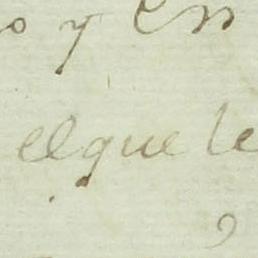 o y en
el que le